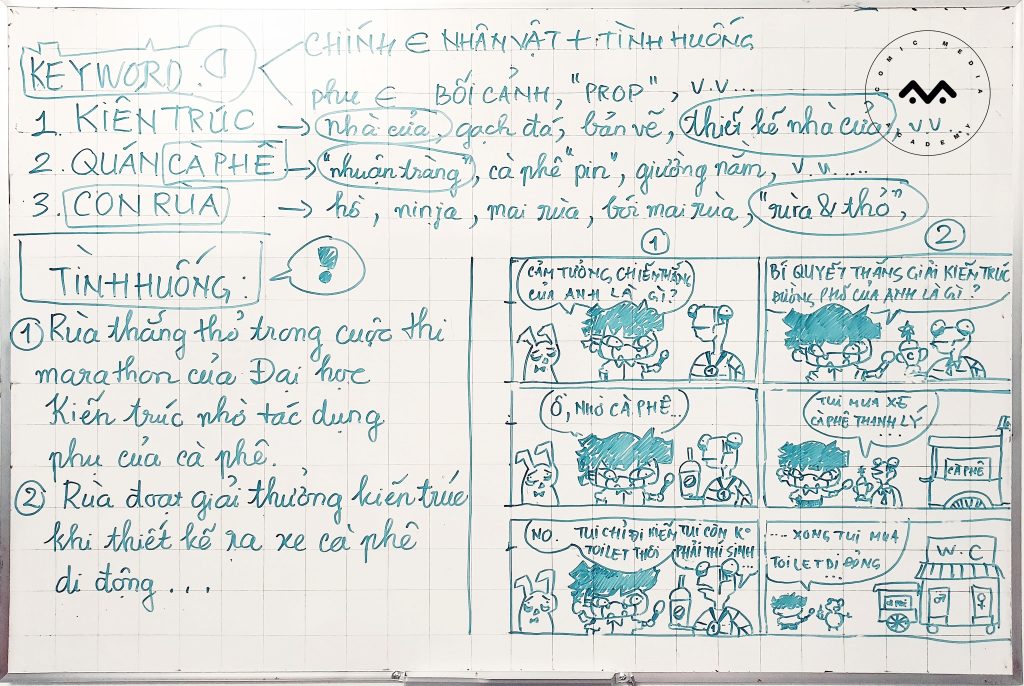 KEYWORD:
CHÍNH ∈ NHÂN VẬT + TÌNH HUỐNG
phụ ∈ BỐI CẢNH, "PROP", v.v...
1. KIẾN TRÚC → nhà cửa, gạch đá, bản vẽ, thiết kế nhà cửa, v.v..
2. QUÁN CÀ PHÊ → "nhuận tràng", cà phê "pin", giường nằm, v.v.....
3. CON RÙA → hồ, ninja, mai rùa, bói mai rùa, "rùa & thỏ",
COMIC MEDIA ACADEMY
TÌNH HUỐNG:
!
① Rùa thắng thỏ trong cuộc thi
marathon của Đại học
Kiến trúc nhờ tác dụng
phụ của cà phê.
② Rùa đoạt giải thưởng kiến trúc
khi thiết kế ra xe cà phê
di động...
①
CẢM TƯỞNG CHIẾN THẮNG
CỦA ANH LÀ GÌ?
1
Ồ, NHỜ CÀ PHÊ...
NO.
TUI CHỈ ĐI KIẾM
TOILET THÔI
TUI CÒN K°
PHẢI THÍ SINH
...
1
②
BÍ QUYẾT THẮNG GIẢI KIẾN TRÚC
ĐƯỜNG PHỐ CỦA ANH LÀ GÌ?
C
TUI MUA XE
CÀ PHÊ THANH LÝ
....
CÀ PHÊ
.... XONG TUI MUA
TOILET DI ĐỘNG
...
CÀ PHÊ
W.C
♂ ♀